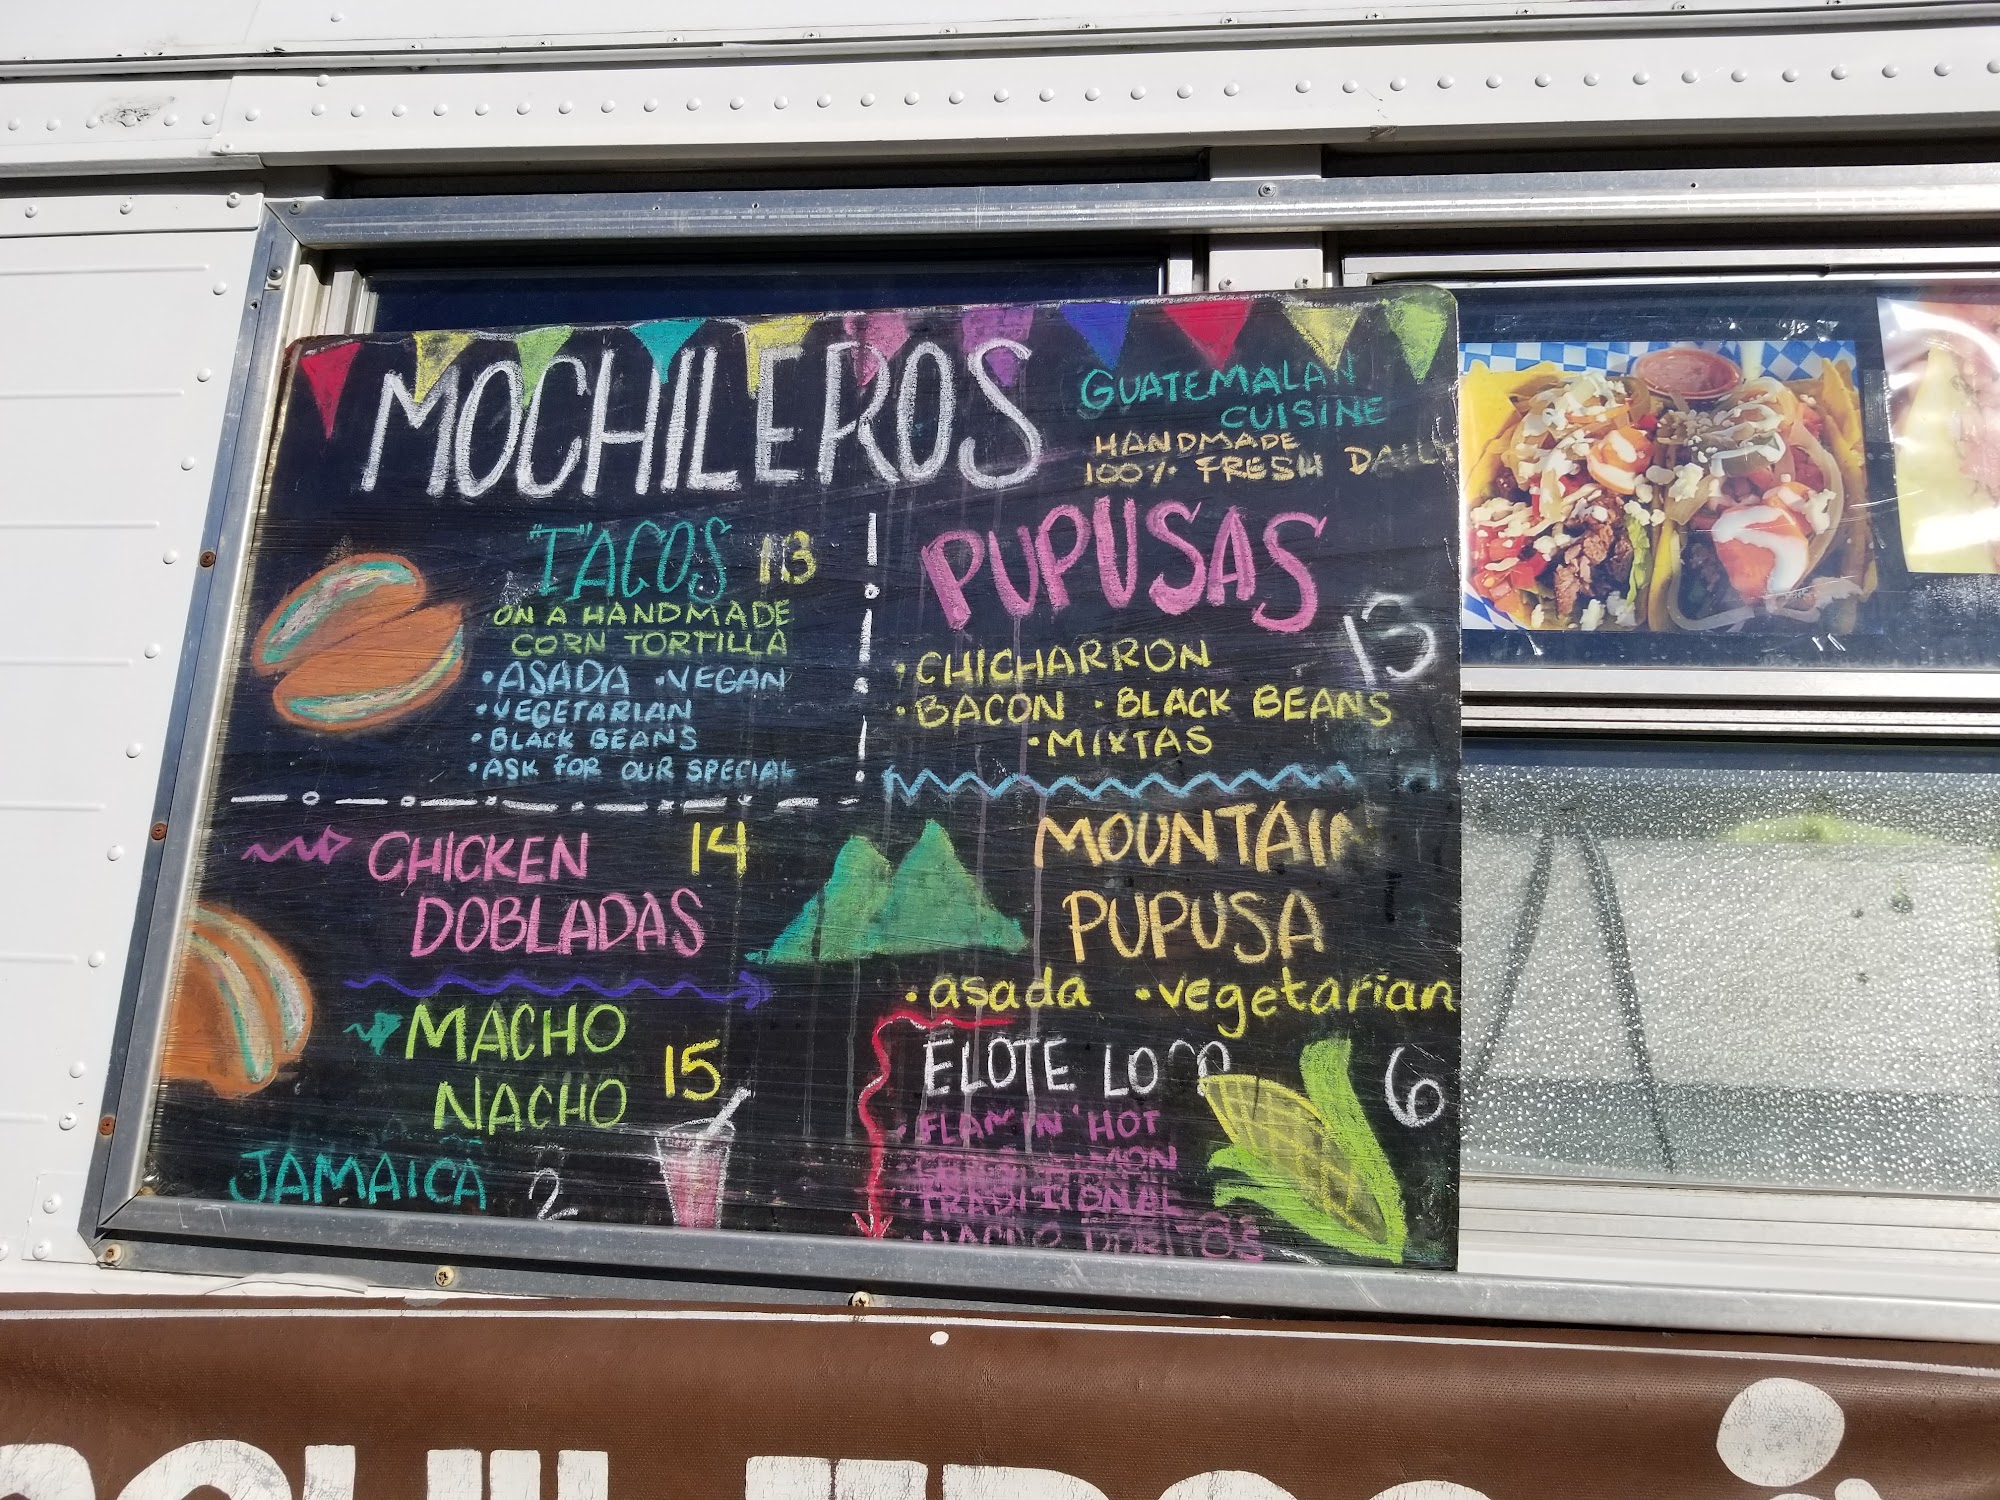 MOCHILEROS
GUATEMALAN
CUISINE
HANDMADE
100% FRESH DAILY
"T"ACOS 13
ON A HANDMADE
CORN TORTILLA
• ASADA • VEGAN
• VEGETARIAN
• BLACK BEANS
• ASK FOR OUR SPECIAL
PUPUSAS
13
• CHICHARRON
• BACON • BLACK BEANS
• MIXTAS
CHICKEN 14
DOBLADAS
MOUNTAIN
PUPUSA
• asada • vegetarian
MACHO
NACHO 15
JAMAICA 2
ELOTE LOCO 6
• FLAMIN' HOT
• TRADITIONAL
NACHO DORITOS